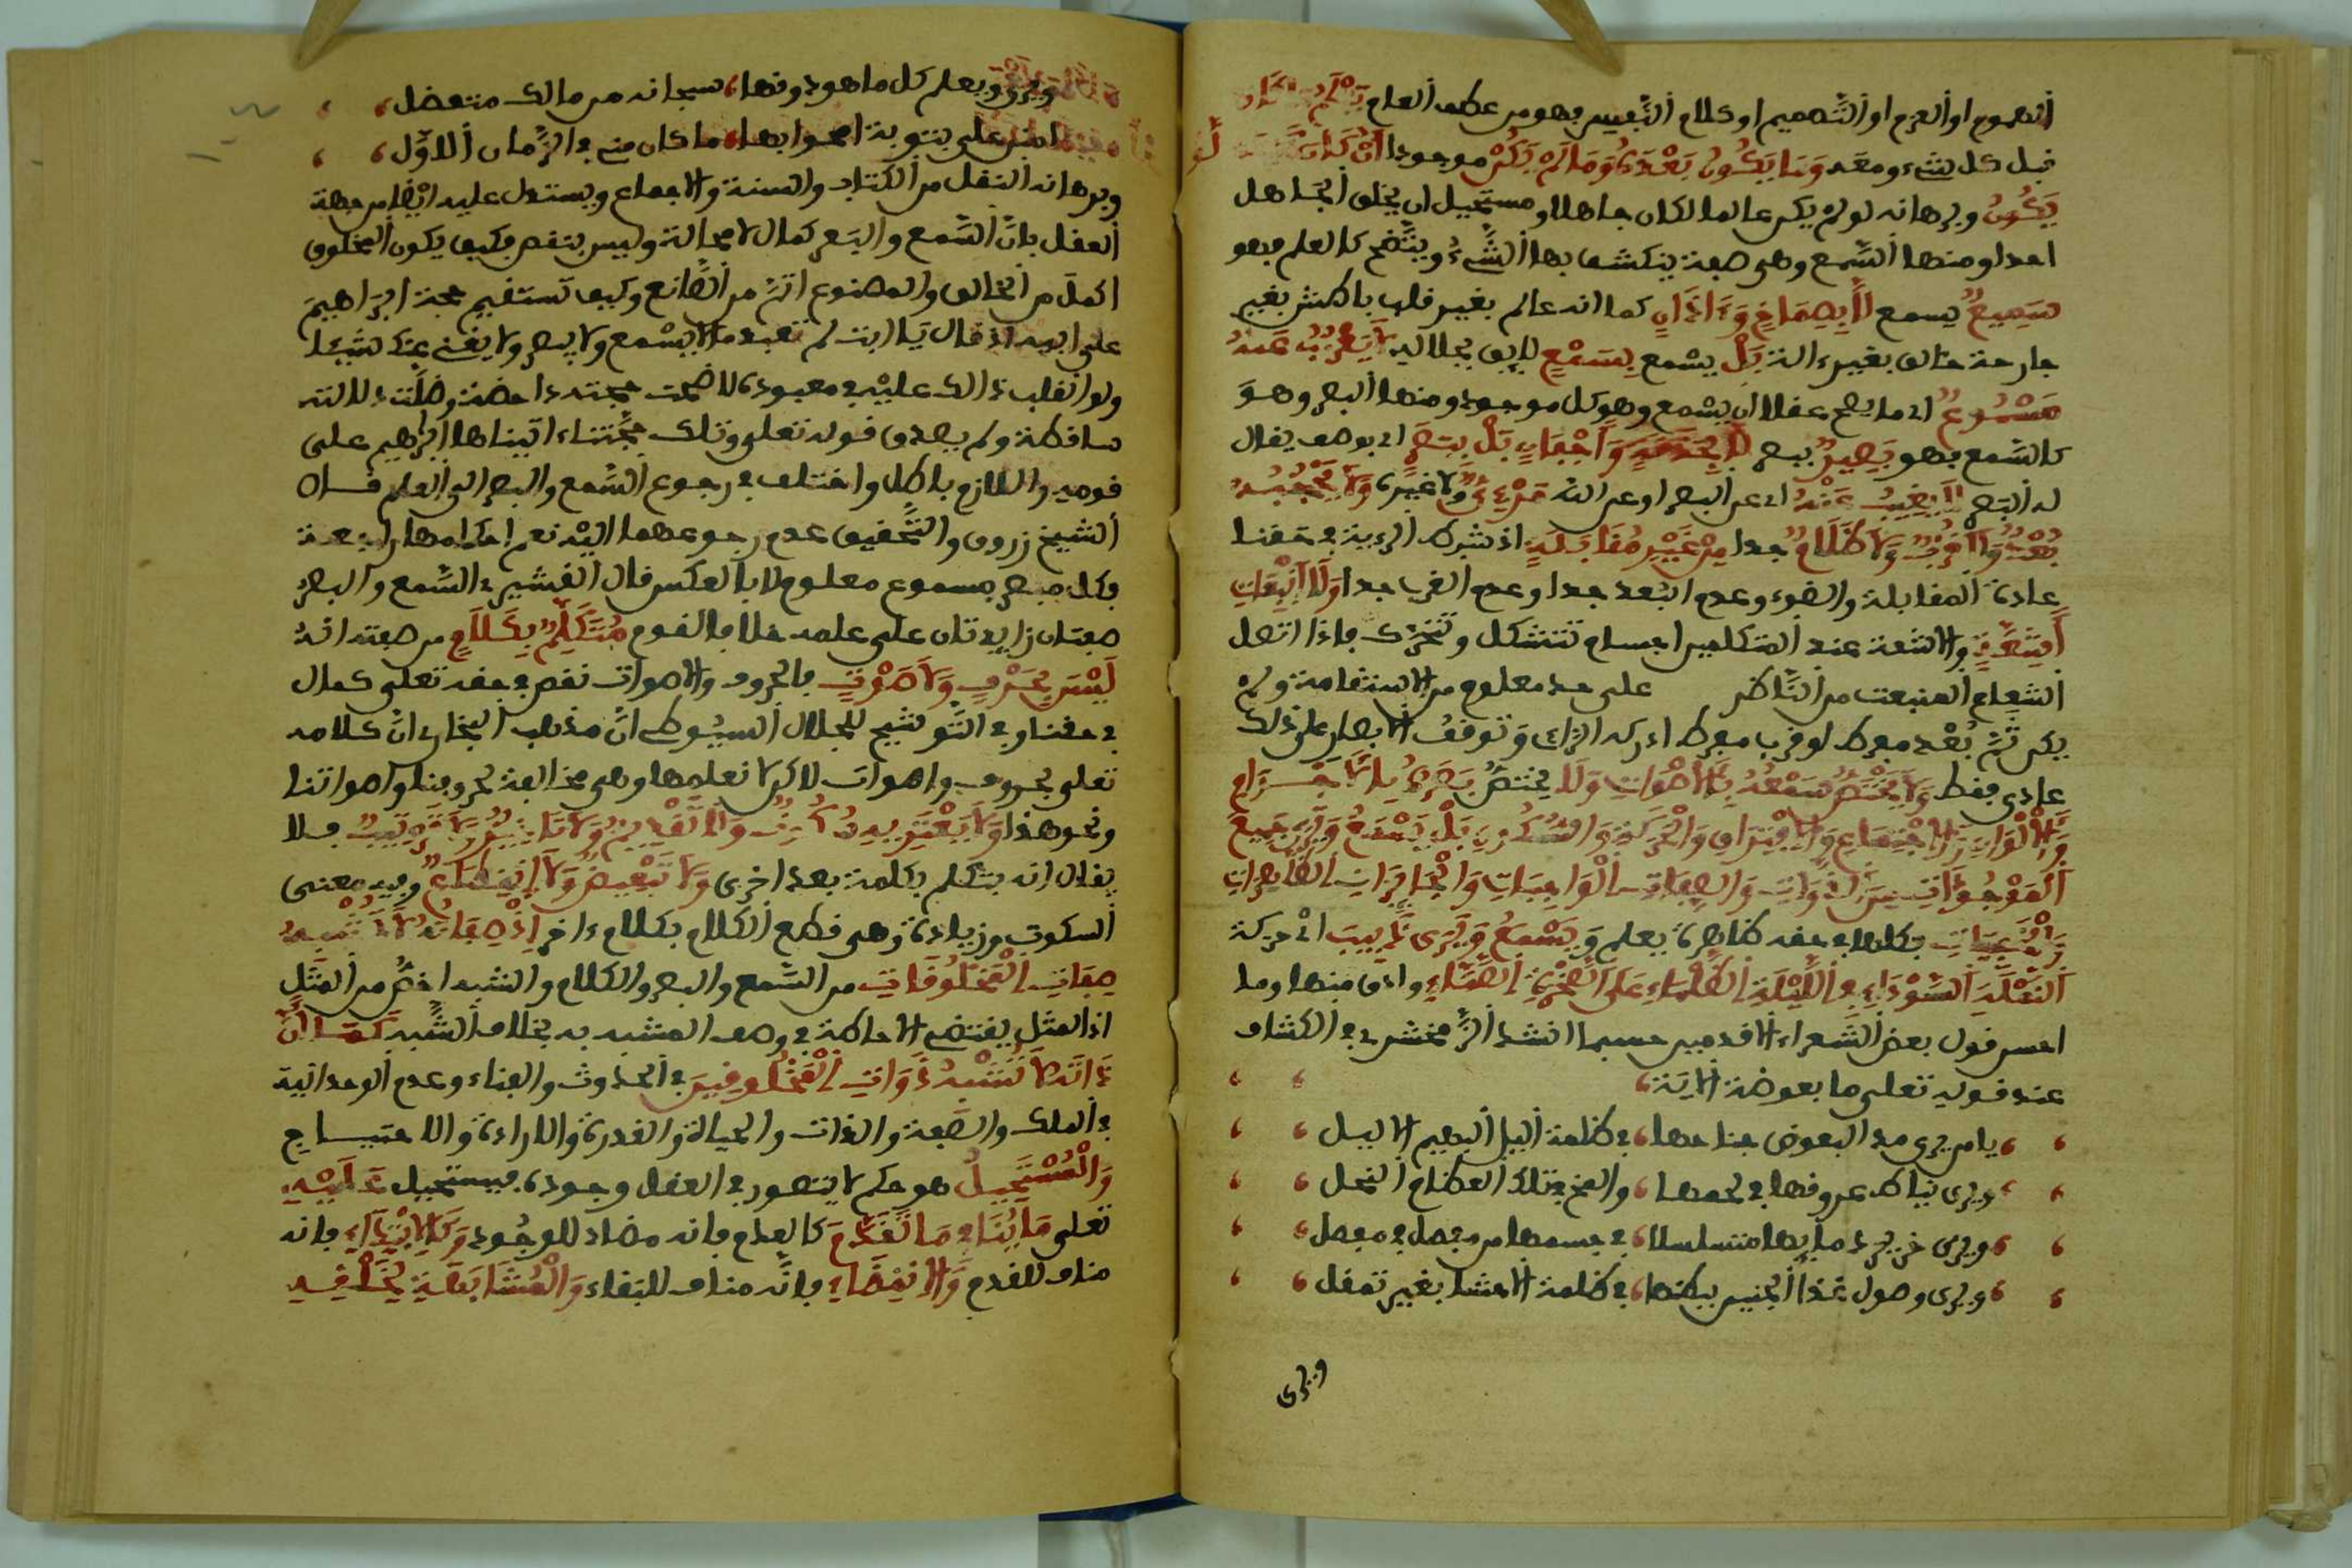 العموم او العزم او التصميم او كلام النفس فهو من عطف العام
قبل كل شيء ومعه وَمَا يَكُونُ بَعْدَهُ وَمَا لَمْ يَكُنْ موجودا أنْ كَانَ
يَكُونُ وبرهانه لو لم يكن عالما لكان جاهلا ومستحيل ان يخلق الجاهل
احدا ومنها السّمع وهي صفة ينكشف بها الشّيءُ ويتّضح كالعلم فهو
سَمِيعٌ يسمع لاَ بِصِمَاخٍ وَءَاذَانٍ كما انه عالم بغير قلب باطش بغير
جارحة خالق بغير ءالة بَلْ يسْمع بِسَمْعٍ لايق بجلاله لاَ يَعْزُبُ عَنْهُ
مَسْمُوعٌ اي ما يصح عقلا ان يسْمع وهو كل موجود ومنها البصر وهوَ
كالسّمع فهو بَصِيرٌ يبصر لاَ بِحَدَقَةٍ وَأَجْفَانٍ بَلْ بِبَصَرٍ اي بوصف يقال
له البَصر لاَ يَغِيبُ عَنْهُ اي عن البصر او عن الله مَرْءِيٌّ ولا غيره وَلاَ يَحْجُبُهُ
بُعْدٌ وَلاَ قُرْبٌ وَلاَ ظَلاَمٌ جدا مِنْ غَيْرِ مُقَابَلَةٍ اذ شرط الرءية في حقنا
عادة المقابلة والضوء وعدم البُعد جدا وعدم القرب جدا وَلاَ انْبِعَاثِ
أَشِعَّةٍ والاشعة عند المتكلمين اجسام تتشكل وتتحرّك فاذا اتصل
الشعاع المنبعث من النّاظر على حد معلوم من الاستقامة ولم
يكن ثَمَّ بُعْد مفرط او قرب مفرط ادركه الرّاءي وَتوقفُ الابصار على ذلك
عادي فقط وَلاَ يَخْتَصُّ سَمْعُهُ بِالاَصْوَاتِ وَلاَ يَخْتَصُّ بَصَرُهُ بِالاَجْرَامِ
وَالاَلْوَانِ وَالاِجْتِمَاعِ وَالاِفْتِرَاقِ وَالْحَرَكَةِ وَالسُّكُونِ بَلْ يَسْمَعُ وَيَرَى جَمِيعَ
الْمَوْجُودَاتِ مِنَ الذَّوَاتِ وَالصِّفَاتِ الْوَاجِبَاتِ وَالْجَايِزَاتِ الظَّاهِرَاتِ
وَالْخَفِيَّاتِ فكلها في حقه ظاهرة يعلم وَيَسْمَعُ وَيَرَى دَبِيبَ ايْ حركة
النَّمْلَةِ السَّوْدَاءِ فِي اللَّيْلَةِ الظَّلْمَاءِ عَلَى الصَّخْرَةِ الصَّمَّاءِ وادق منها وما
احسن قول بعض الشّعراء الاقدمين حسبما انشد الزّمخشري في الكشاف
عند قوله تعلى ما بعوضة الاية
يا من يرى مد البعوض جناحها في ظلمة اليل البهيم الاليل
ويرى نياط عروقها في لحمها والمخ في تلك العظام النحل
ويرى خرير دمايها متسلسلا في جسمها من مفصل في مفصل
ويرى وصول غذا الجنين ببطنها في ظلمة الاحشا بغير تمقل
ويرى
ويرى ويعلم كل ما هو دونها سبحانه من مالك متفضل
امنن علي بتوبة امحوا بها ما كان مني في الزّمان الاوّل
وبرهانه النقل من الكتاب والسنة والاجماع ويستدل عليه ايْضا من جهة
العقل بانّ السّمع والبَصر كمال لا محالة وليس بنقص فكيف يكون المخلوق
اكمل من الخالق والمصنوع اتمّ من الصّانع وكيف تستقيم حجة ابْرَاهِيمَ
على ابيه اذ قال يَا ابت لم تعبد ما لا يسْمع ولا يبصر ولا يغني عنك شيئا
ولو انقلب ذالك عليْه في معبوده لاضحت حجته داحضة ودلالته
ساقطة ولم يصدق قوله تعلى وتلك حجّتناء اتيناها إبْراهيم على
قومه واللازم باطل واختلف في رجوع السّمع والبصر الى العلم قال
الشيخ زروق والتّحقيق عدم رجوعهما اليْه نعم احكامها راجعة
فكل مبصر مسموع معلوم لا بالعكس قال القشيري السّمع والبصر
صفتان زايدتان على علمه خلافا لقوم مُتَكَلِّمٌ بِكَلاَمٍ من صفته انّهُ
لَيْسَ بِحَرْفٍ وَلاَ صَوْتٍ فالحروف والاصوات نقص في حقه تعلى كمال
في حقنا وفي التّوشيح للجلال السيُوطي انّ مذهب البخاري انّ كلامه
تعلى بحروف واصوات لاكن لا نعلمها وهي مخالفة لحروفنا واصواتنا
ونحو هذا وَلاَ يَعْتَرِيهِ سُكُوتٌ وَلاَ تَقْدِيمٌ وَلاَ تَاخِيرٌ وَلاَ تَرْتِيبٌ فلا
يقال انه يتكلم بكلمة بعد اخرى وَلاَ تَبْعِيضٌ وَلاَ إنْقِطَاعٌ وفيه معنى
السكوت وزيادة وهي قطع الكلام بكلام ءاخر إذْ صِفَاتُهُ لاَ تُشْبِهُ
صِفَاتِ الْمَخْلُوقَاتِ من السّمع والبصر والكلام والشبه اخصُّ من المثَل
اذ المثل يقتضي الاحاطة في وصف المشبه به بخلاف الشّبه كَمَا أنَّ
ذَاتَهُ لاَ تُشْبِهُ ذَوَاتِ الْمَخْلُوقِينَ في الحدوث والفناء وعدم الوحدانية
في الملك والصّفة والذات والحياة والقدرة والارادة والاحتياج
وَالْمُسْتَحِيلُ هو حكم لا يتصور في العقل وجوده فيستحيل عَلَيْهِ
تعلى مَا يُنَافِي مَا تَقَدَّمَ كالعدم فانه مضاد للوجُود وَكَالاِبْتِدَاءِ فانه
مناف للقدم وَالاِنْقِضَاءِ فانّه مناف للبقاء وَالْمُشَابَهَةِ لِخَلْقِهِ